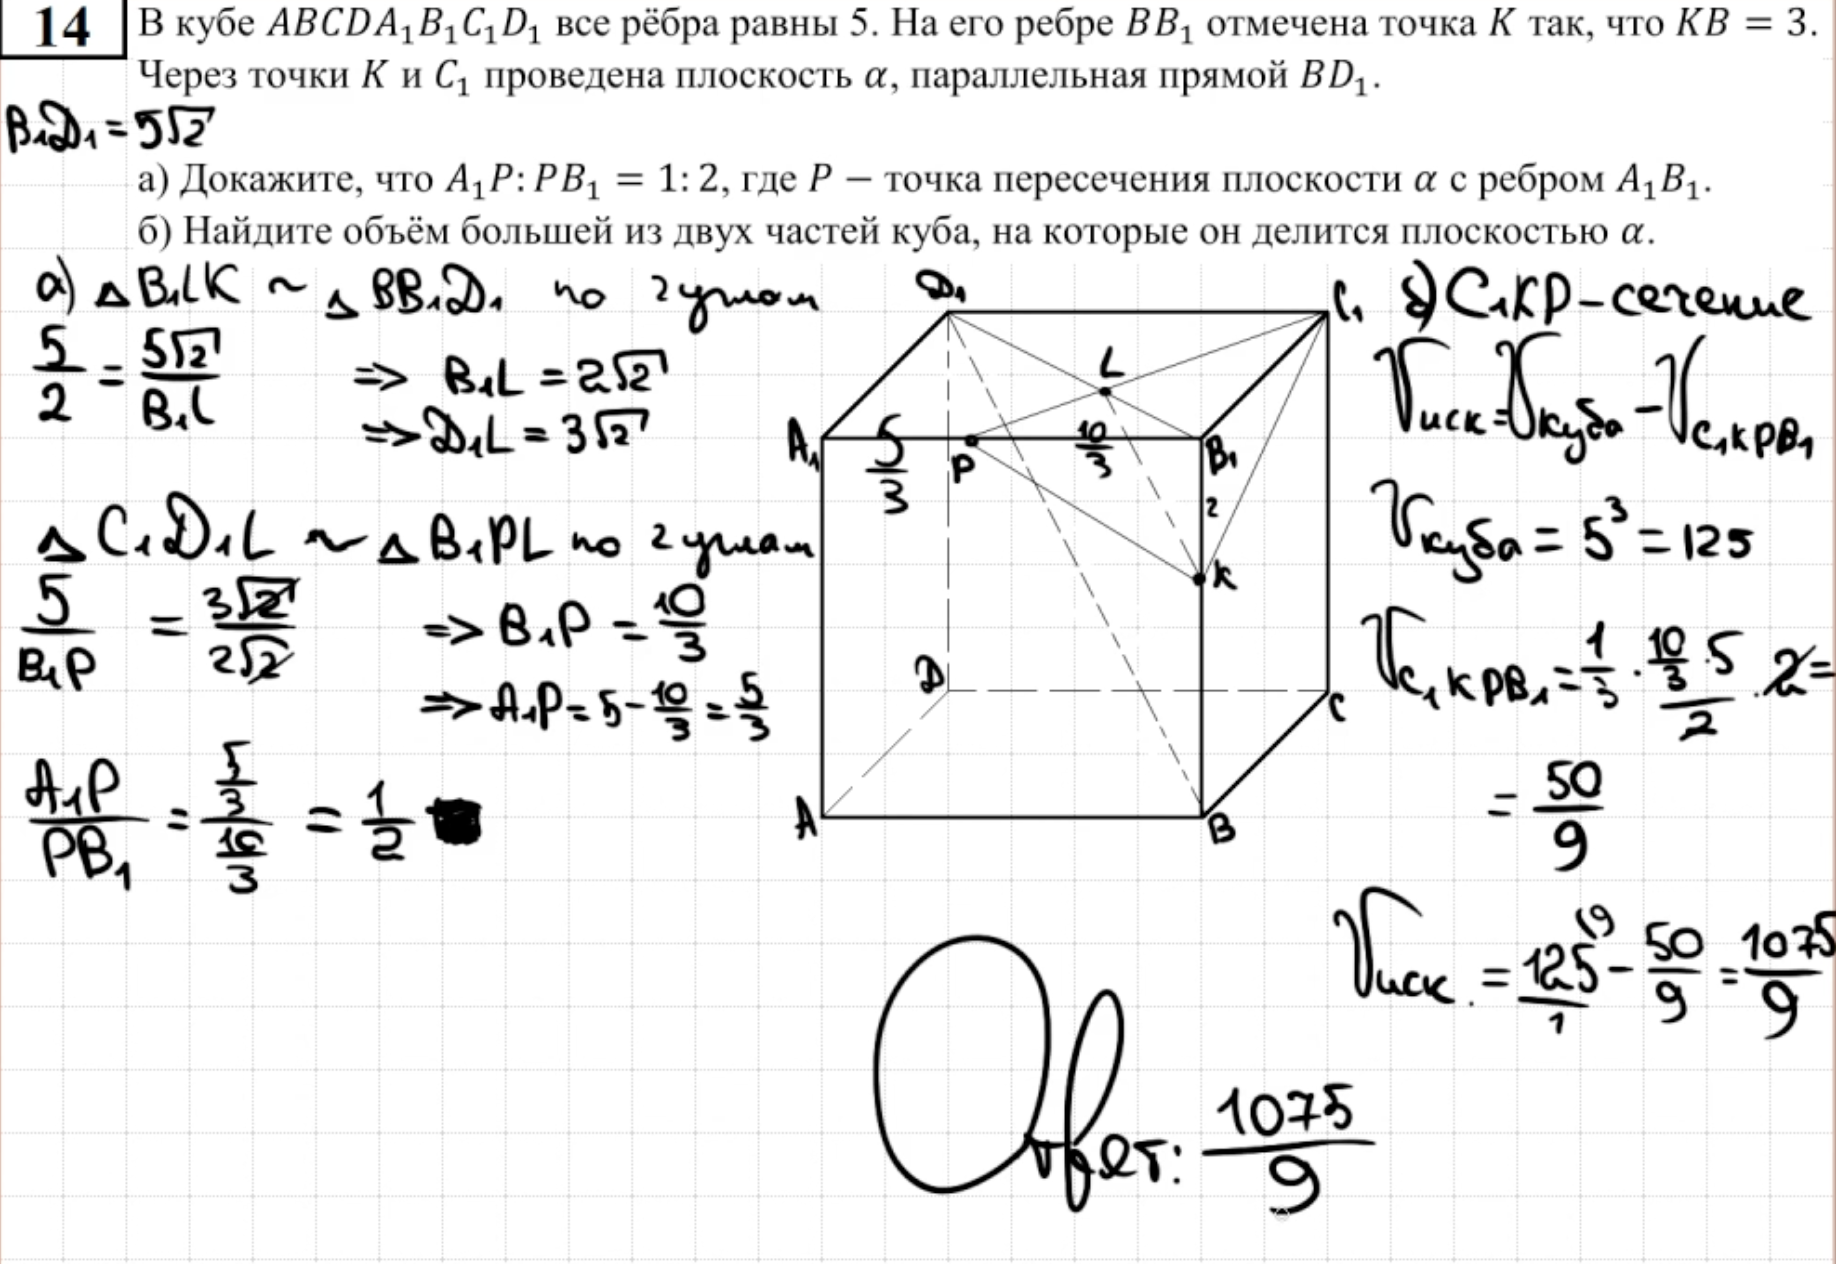 14
В кубе ABCDA₁B₁C₁D₁ все рёбра равны 5. На его ребре BB₁ отмечена точка K так, что KB = 3.
Через точки K и C₁ проведена плоскость α, параллельная прямой BD₁.
B₁D₁ = 5√2
а) Докажите, что A₁P: PB₁ = 1: 2, где P – точка пересечения плоскости α с ребром A₁B₁.
б) Найдите объём большей из двух частей куба, на которые он делится плоскостью α.
а) △ B₁LK ~ △ BB₁D₁ по 2 углам
5/2 = 5√2/B₁L => B₁L = 2√2
=> D₁L = 3√2
△ C₁D₁L ~ △ B₁PL по 2 углам
5/B₁P = 3√2/2√2 => B₁P = 10/3
=> A₁P = 5 - 10/3 = 5/3
A₁P/PB₁ = 5/3 / 10/3 = 1/2
D₁
C₁
L
A₁
5/3
P
10/3
B₁
2
K
D
C
A
B
б) C₁KP - сечение
Vиск = Vкуба - VC₁KPB₁
Vкуба = 5³ = 125
VC₁KPB₁ = 1/3 · 10/3 · 5 / 2 · 2 =
= 50/9
Vиск. = 125/1 (9 - 50/9 = 1075/9
Ответ: 1075/9